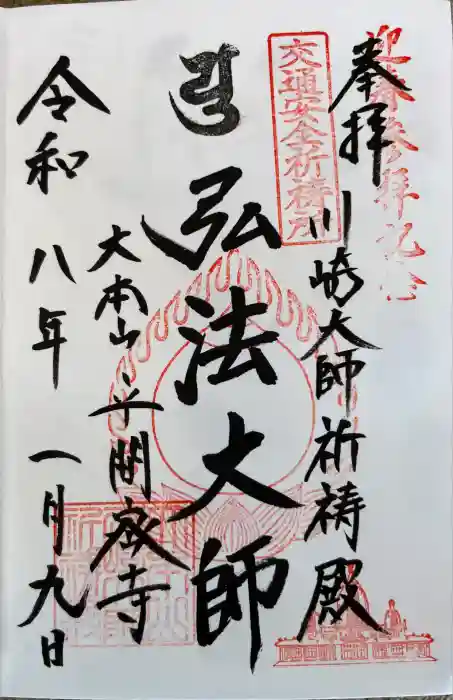 迎春参拝記念
奉拝
川崎大師祈祷殿
交通安全祈祷所
弘法大師
大本山・平間寺
令和八年一月九日